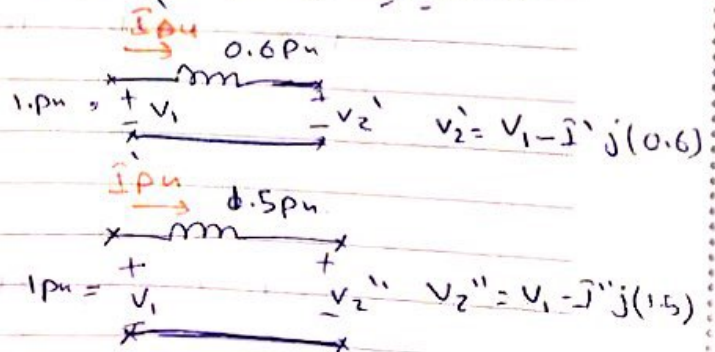 I pu
0.6 pu
1.pu = + V₁ - + - V₂' V₂' = V₁ - I' j(0.6)
I' pu
1.5 pu
1pu = + V₁ + - V₂'' V₂'' = V₁ - I'' j(1.5)